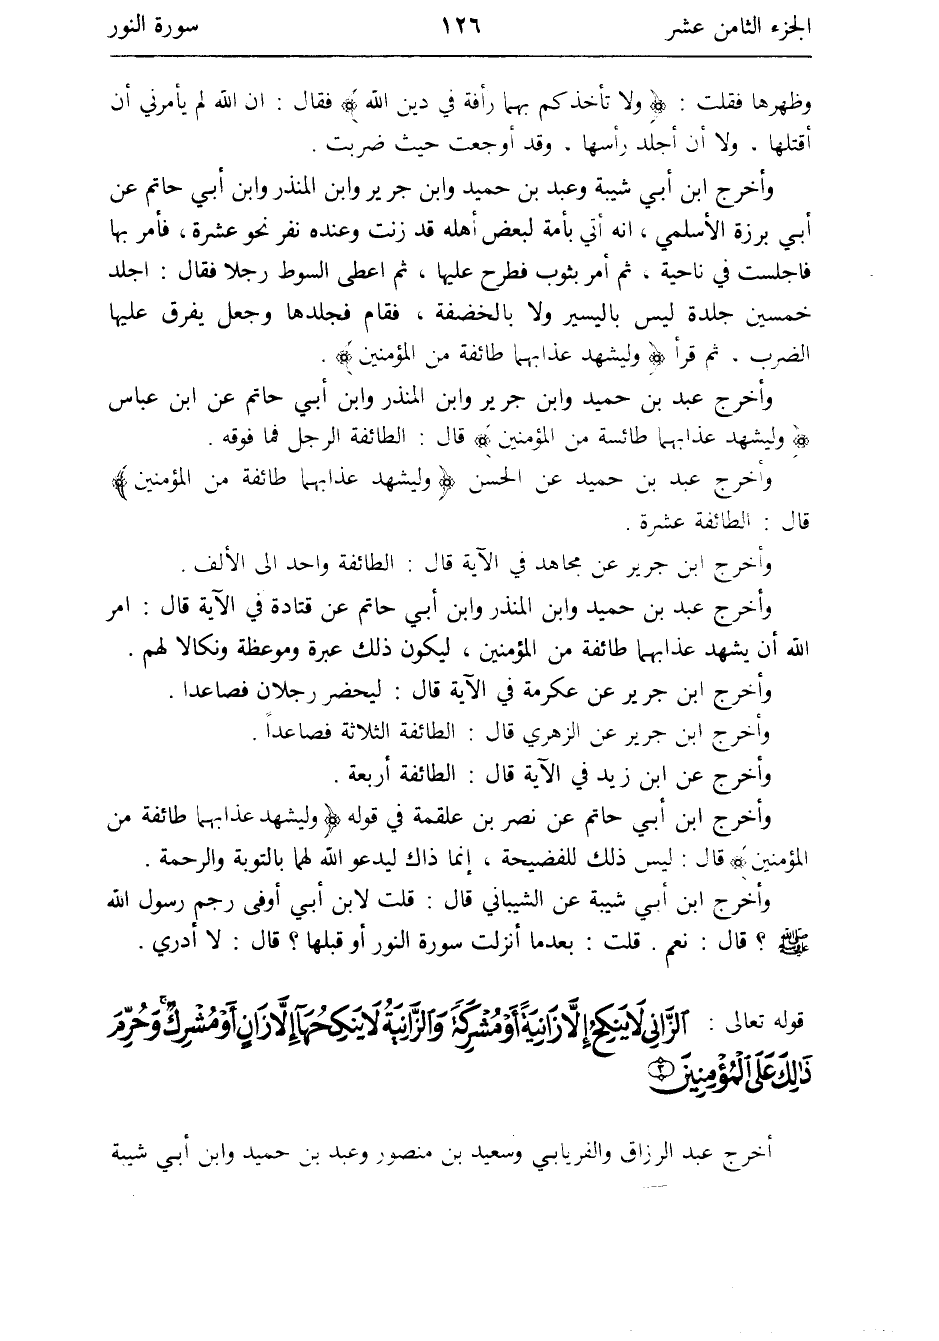 الجزء الثامن عشر ١٢٦ سورة النور
وظهرها فقلت : ﴿ ولا تأخذكم بهما رأفة في دين الله ﴾ فقال : ان الله لم يأمرني أن
أقتلها . ولا أن أجلد رأسها . وقد أوجعت حيث ضربت .
وأخرج ابن أبي شيبة وعبد بن حميد وابن جرير وابن المنذر وابن أبي حاتم عن
أبي برزة الأسلمي ، انه أتي بأمة لبعض أهله قد زنت وعنده نفر نحو عشرة ، فأمر بها
فاجلست في ناحية ، ثم أمر بثوب فطرح عليها ، ثم اعطى السوط رجلا فقال : اجلد
خمسين جلدة ليس باليسير ولا بالخضفة ، فقام فجلدها وجعل يفرق عليها
الضرب . ثم قرأ ﴿ وليشهد عذابهما طائفة من المؤمنين ﴾ .
وأخرج عبد بن حميد وابن جرير وابن المنذر وابن أبي حاتم عن ابن عباس
﴿ وليشهد عذابهما طائسة من المؤمنين ﴾ قال : الطائفة الرجل فما فوقه .
وأخرج عبد بن حميد عن الحسن ﴿ وليشهد عذابهما طائفة من المؤمنين ﴾
قال : الطائفة عشرة .
وأخرج ابن جرير عن مجاهد في الآية قال : الطائفة واحد الى الألف .
وأخرج عبد بن حميد وابن المنذر وابن أبي حاتم عن قتادة في الآية قال : امر
الله أن يشهد عذابهما طائفة من المؤمنين ، ليكون ذلك عبرة وموعظة ونكالا لهم .
وأخرج ابن جرير عن عكرمة في الآية قال : ليحضر رجلان فصاعدا .
وأخرج ابن جرير عن الزهري قال : الطائفة الثلاثة فصاعداً .
وأخرج عن ابن زيد في الآية قال : الطائفة أربعة .
وأخرج ابن أبي حاتم عن نصر بن علقمة في قوله ﴿ وليشهد عذابهما طائفة من
المؤمنين ﴾ قال : ليس ذلك للفضيحة ، إنما ذاك ليدعو الله لهما بالتوبة والرحمة .
وأخرج ابن أبي شيبة عن الشيباني قال : قلت لابن أبي أوفى رجم رسول الله
ﷺ ؟ قال : نعم . قلت : بعدما أنزلت سورة النور أو قبلها ؟ قال : لا أدري .
قوله تعالى : الزَّانِي لَا يَنكِحُ إِلَّا زَانِيَةً أَوْ مُشْرِكَةً وَالزَّانِيَةُ لَا يَنكِحُهَآ إِلَّا زَانٍ أَوْ مُشْرِكٌ وَحُرِّمَ
ذَٰلِكَ عَلَى الْمُؤْمِنِينَ ٣
أخرج عبد الرزاق والفريابي وسعيد بن منصور وعبد بن حميد وابن أبي شيبة